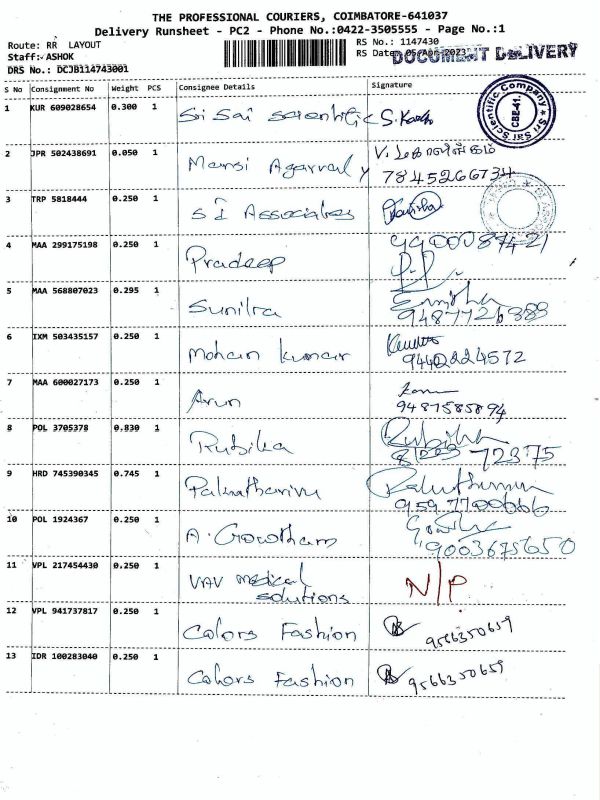 THE PROFESSIONAL COURIERS, COIMBATORE-641037
Delivery Runsheet - PC2 - Phone No.:0422-3505555 - Page No.:1
Route: RR LAYOUT
Staff:- ASHOK
DRS No.: DCJB114743001
RS No.: 1147430
RS Date: 05-Apr-2023
DOCUMENT DELIVERY
S No Consignment No Weight PCS Consignee Details Signature
1 KUR 609028654 0.300 1 Sri Sai Scientific
Sri Sai Scientific Company CBE-41.
2 JPR 502438691 0.050 1 Mansi Agarwal V.
7845266734
3 TRP 5818444 0.250 1 S I Associates
4 MAA 299175198 0.250 1 Pradeep 9900087421
5 MAA 568807023 0.295 1 Sunitra
9487726388
6 IXM 503435157 0.250 1 Mohan Kumar
9440224572
7 MAA 600027173 0.250 1 Arun
9487585894
8 POL 3705378 0.830 1 Rubika Rubika
72375
9 HRD 745390345 0.745 1
959 7700666
10 POL 1924367 0.250 1 A. Gowtham
9003675650
11 VPL 217454430 0.250 1 VAV medical N/P
solutions
12 VPL 941737817 0.250 1 Colors Fashion 9566350659
13 IDR 100283040 0.250 1 Colors Fashion 9566350659